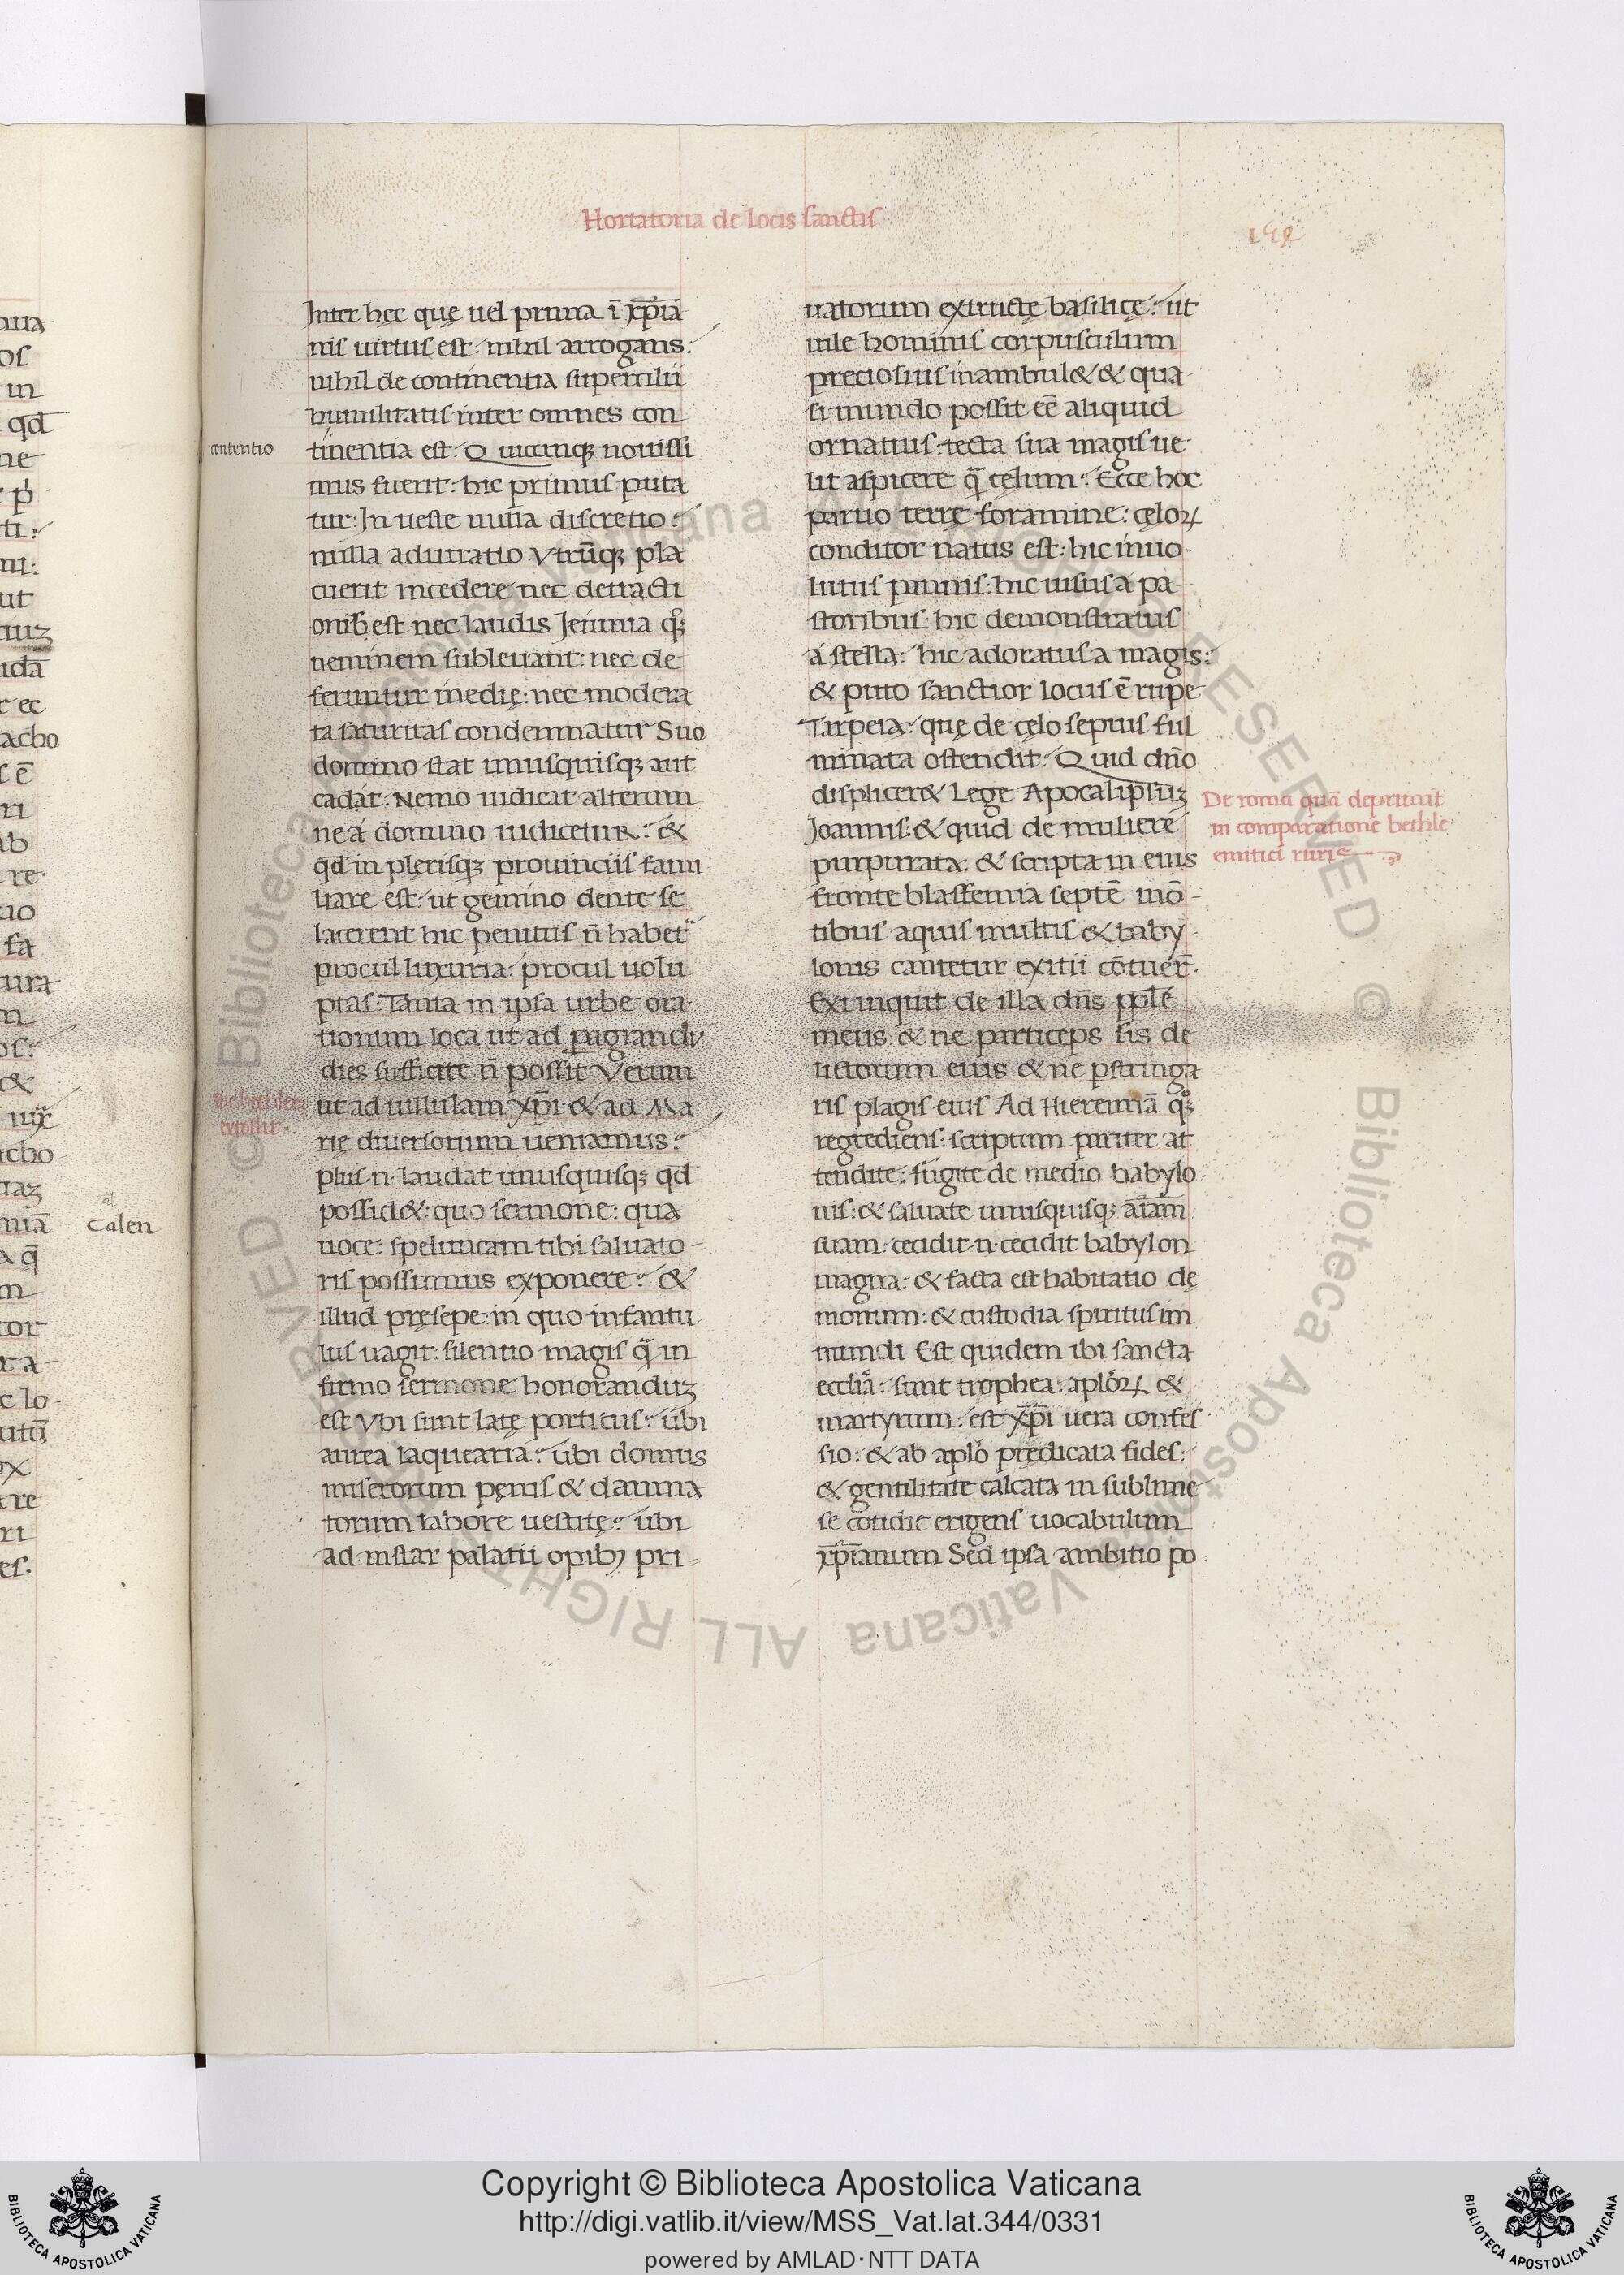 Hortatoria de locis sanctis
Inter hęc quę uel prima ī xp̄ia
nis uirtus est: nihil arrogans:
nihil de continentia supercilii
humilitatis inter omnes con
contentio
tinentia est. Quicunqꝫ nouissi
mus fuerit: hic primus puta
tur: In ueste nulla discretio:
nulla admiratio Vtrūqꝫ pla
cuerit incedere nec detracti
onibꝫ est nec laudis Ieiunia qͦꝫ
neminem subleuant: nec de
feruntur inedię: nec modera
ta saturitas condemnatur Suo
domino stat unusquisqꝫ aut
cadat. Nemo iudicat alterum
ne a domino iudicetur: &
qd̄ in plerisqꝫ prouinciis fami
liare est: ut gemino dente se
lacerent hic penitus n̄ habet᷑
procul luxuria: procul uolu
ptas: Tanta in ipsa urbe ora
tionum loca ut ad ꝑagrandū
dies sufficere n̄ possit Verum
ut ad uillulam xp̄i & ad Ma
extollit
rię diuersorium ueniamus:
plus .n. laudat unusquisqꝫ qd̄
possid&: quo sermone: qua
uoce: speluncam tibi saluato-
ris possumus exponere: &
illud pręsepe: in quo infantu
lus uagiit: silentio magis q̄ in
firmo sermone honoranduꝫ
est Vbi sunt latę porticus: ubi
aurea laquearia: ubi domus
miserorum pęnis & damna
torum labore uestitę: ubi
ad instar palatii opibꝫ pri-
uatorum extructę basilicę: ut
uile hominis corpusculum
preciosius inambul& & qua-
si mundo possit eē aliquid
ornatius: tecta sua magis ue-
lit aspicere q̄ cęlum: Ecce hoc
paruo terrę foramine: cęloꝝ
conditor natus est: hic inuo
lutus pannis: hic uisus a pa
storibus: hic demonstratus
a stella: hic adoratus a magis:
& puto sanctior locus ē rupe
Tarpeia: quę de cęlo sepius ful
minata ostendit: Quid dn̄o
displicer& Lege Apocalipsiꝫ
De roma quā deprimit
in comparatione bethle
emitici ruris
Ioannis: & quid de muliere
purpurata: & scripta in eius
fronte blasfemia septē mō-
tibus aquis multis & baby-
lonis cantetur exitii cōtuer̄.
Exi inquit de illa dn̄s pp̄le
meus & ne particeps sis de
lictorum eius & ne ꝑstringa
ris plagis eius Ad Hieremiā qͦꝫ
regrediens: scriptum pariter at
tendite: fugite de medio babylo
nis: & saluate unusquisqꝫ aīam
suam: cecidit .n. cecidit babylon
magna: & facta est habitatio dę
monum: & custodia spiritus im
mundi Est quidem ibi sancta
ecclīa: sunt trophea: apl̄oꝝ &
martyrum: est xp̄i uera confes
sio: & ab apl̄o prędicata fides:
& gentilitate calcata in sublime
se cotidie erigens uocabulum
xp̄ianum Sed ipsa ambitio po-
nua
os
in
qd̄
ne
ut
cho
Calen
lo
re
ri
es.
Copyright © Biblioteca Apostolica Vaticana
http://digi.vatlib.it/view/MSS_Vat.lat.344/0331
powered by AMLAD·NTT DATA
© Biblioteca Apostolica Vaticana ALL RIGHTS RESERVED
© Biblioteca Apostolica Vaticana ALL RIGHTS RESERVED
BIBLIOTECA APOSTOLICA VATICANA
BIBLIOTECA APOSTOLICA VATICANA